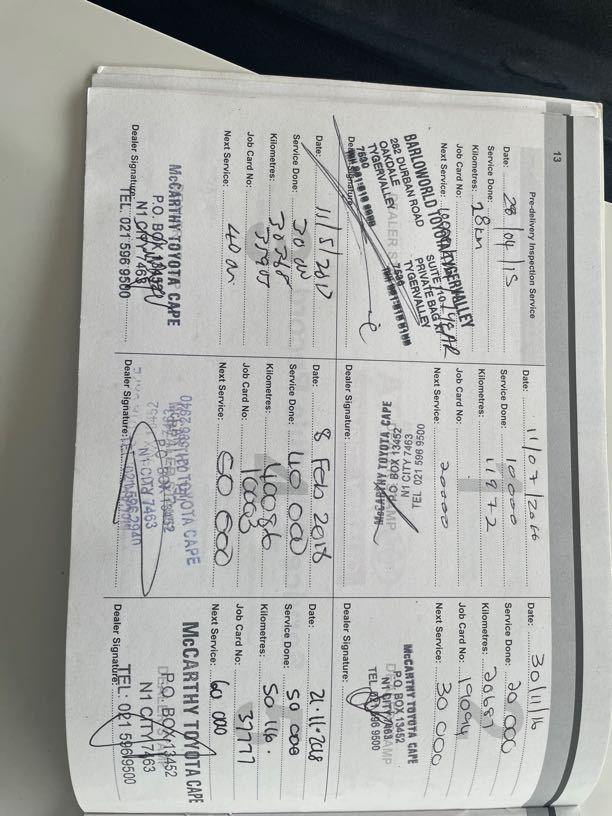 13
Pre-delivery Inspection Service
Date: 28/04/15
Service Done:
Kilometres: 28km
Job Card No:
Next Service:
BARLOWORLD TOYOTA TYGERVALLEY
282 DURBAN ROAD
OAKDALE
TYGERVALLEY
7530
SUITE
PRIVATE BAG
TYGERVALLEY
7530
Dealer Signature:
Date: 11/07/2016
Service Done: 10000
Kilometres: 11972
Job Card No:
Next Service: 20000
McCARTHY TOYOTA CAPE
P.O. BOX 13452
N1 CITY 7463
TEL 021 596 9500
Dealer Signature:
Date: 30/11/16
Service Done: 20 000
Kilometres: 20687
Job Card No: 19094
Next Service: 30 000
McCARTHY TOYOTA CAPE
P.O. BOX 13452
N1 CITY 7463
TEL 021 596 9500
Dealer Signature:
Date: 11/5/2017
Service Done: 30
Kilometres: 30368
Job Card No:
Next Service: 40
McCARTHY TOYOTA CAPE
P.O. BOX 13452
N1 CITY 7463
TEL. 021 596 9500
Dealer Signature:
Date: 8 Feb 2018
Service Done: 40 000
Kilometres: 40086
Job Card No:
Next Service: 50 000
TOYOTA CAPE
P.O. BOX 13452
N1 CITY 7463
Dealer Signature:
Date: 21-11-2018
Service Done: 50 000
Kilometres: 50 146.
Job Card No: 37777
Next Service: 60 000
McCARTHY TOYOTA CAPE
P.O. BOX 13452
N1 CITY 7463
TEL: 021 596 9500
Dealer Signature: